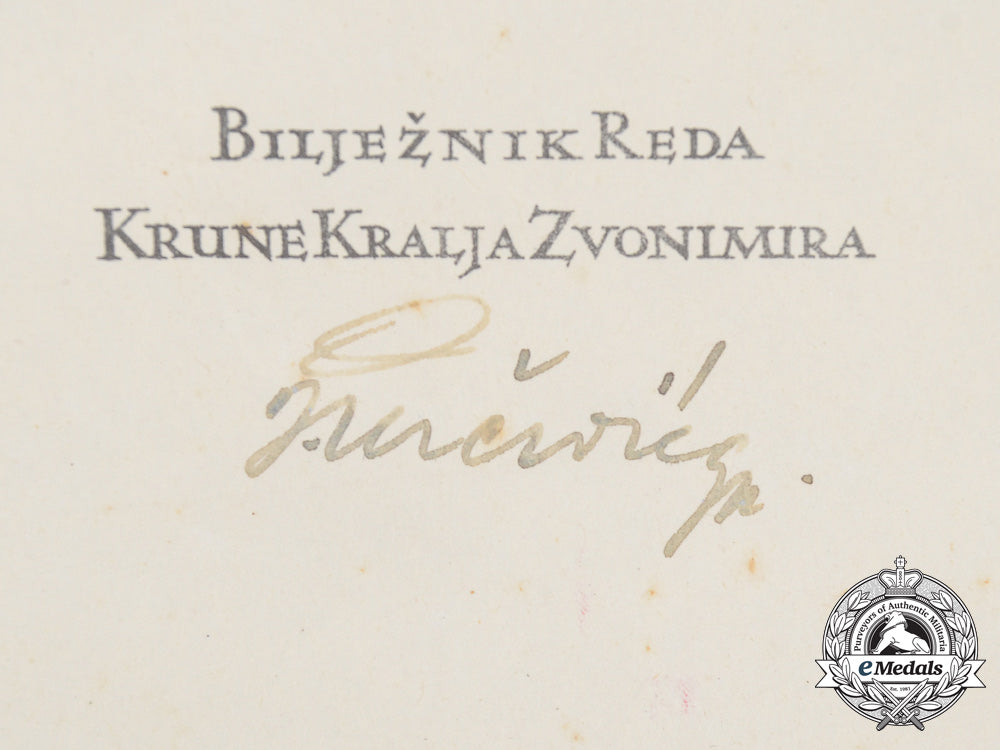 BILJEŽNIK REDA
KRUNE KRALJA ZVONIMIRA
Purveyors of Authentic Militaria
eMedals
Est. 1981